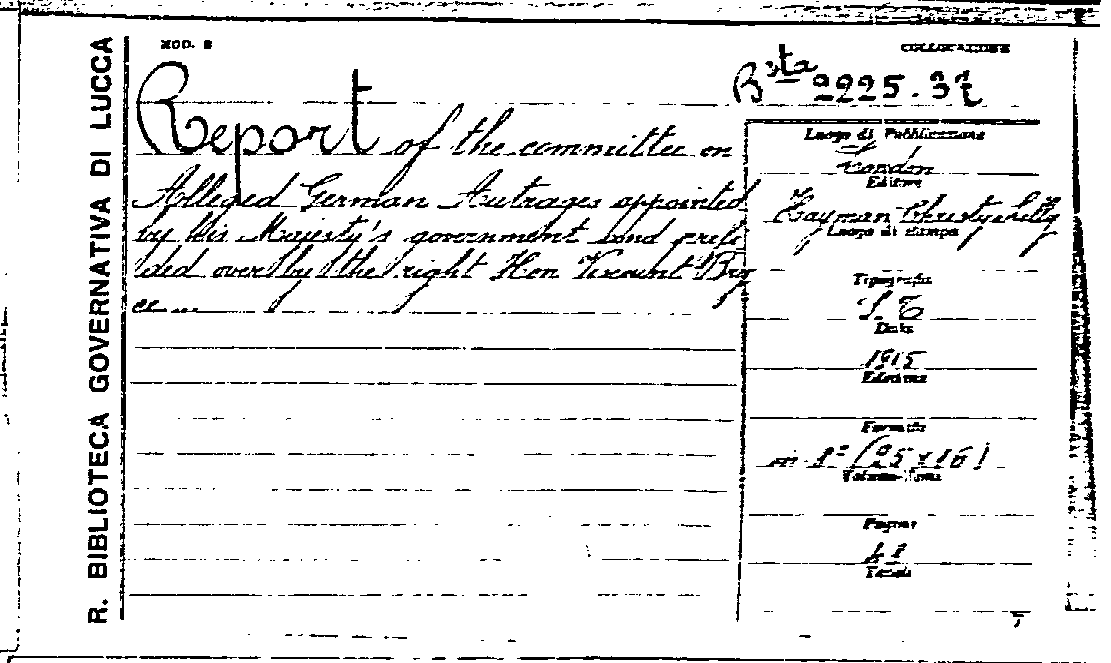 R. BIBLIOTECA GOVERNATIVA DI LUCCA
MOD. B
COLLOCAZIONE
Bsta 2225.37
Report of the committee on
Alleged German Autrages appointed
by his Majesty's government and presi
ded over by the right Hon Viscount Bry
ce
Luogo di Pubblicazione
London
Editore
Hayman Christy
Luogo di stampa
Tipografia
S. T
Data
1915
Edizione
Formato
in 8° (25 x 16)
Volume-Tomo
Pagine
Tavole